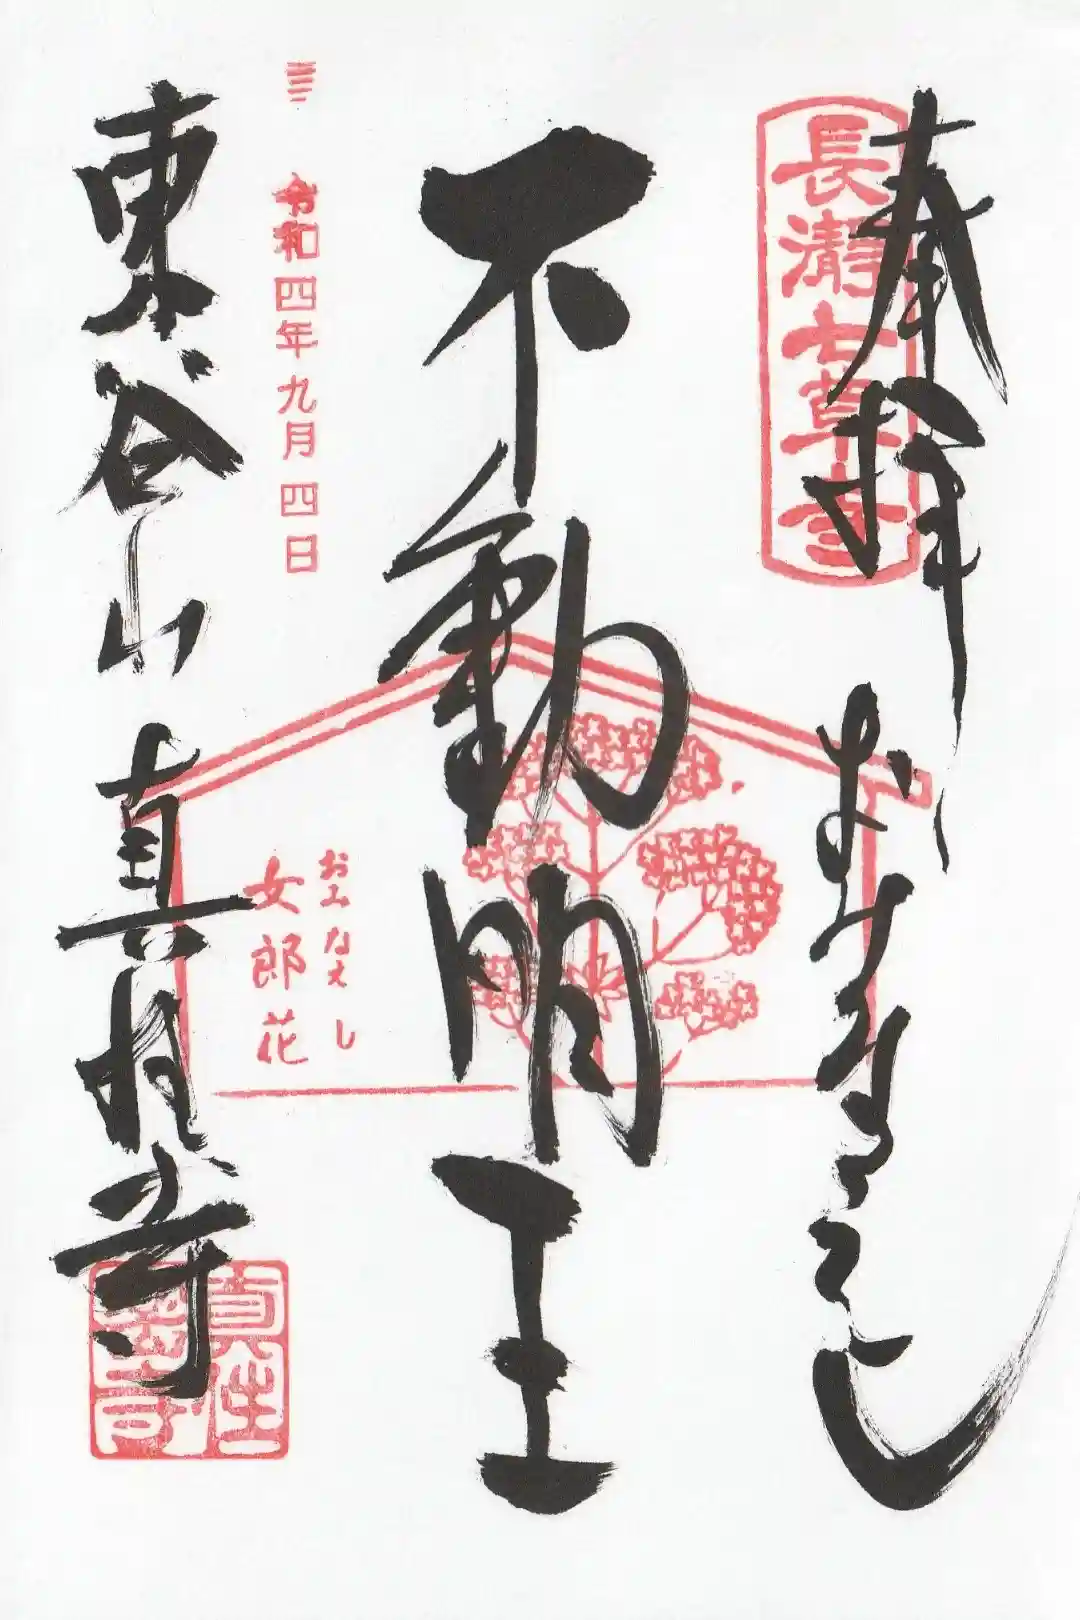 奉拝
長瀞七草寺
おみなえし
不動明王
おみなえし
女郎花
令和四年九月四日
東谷山 真性寺
真性
寺